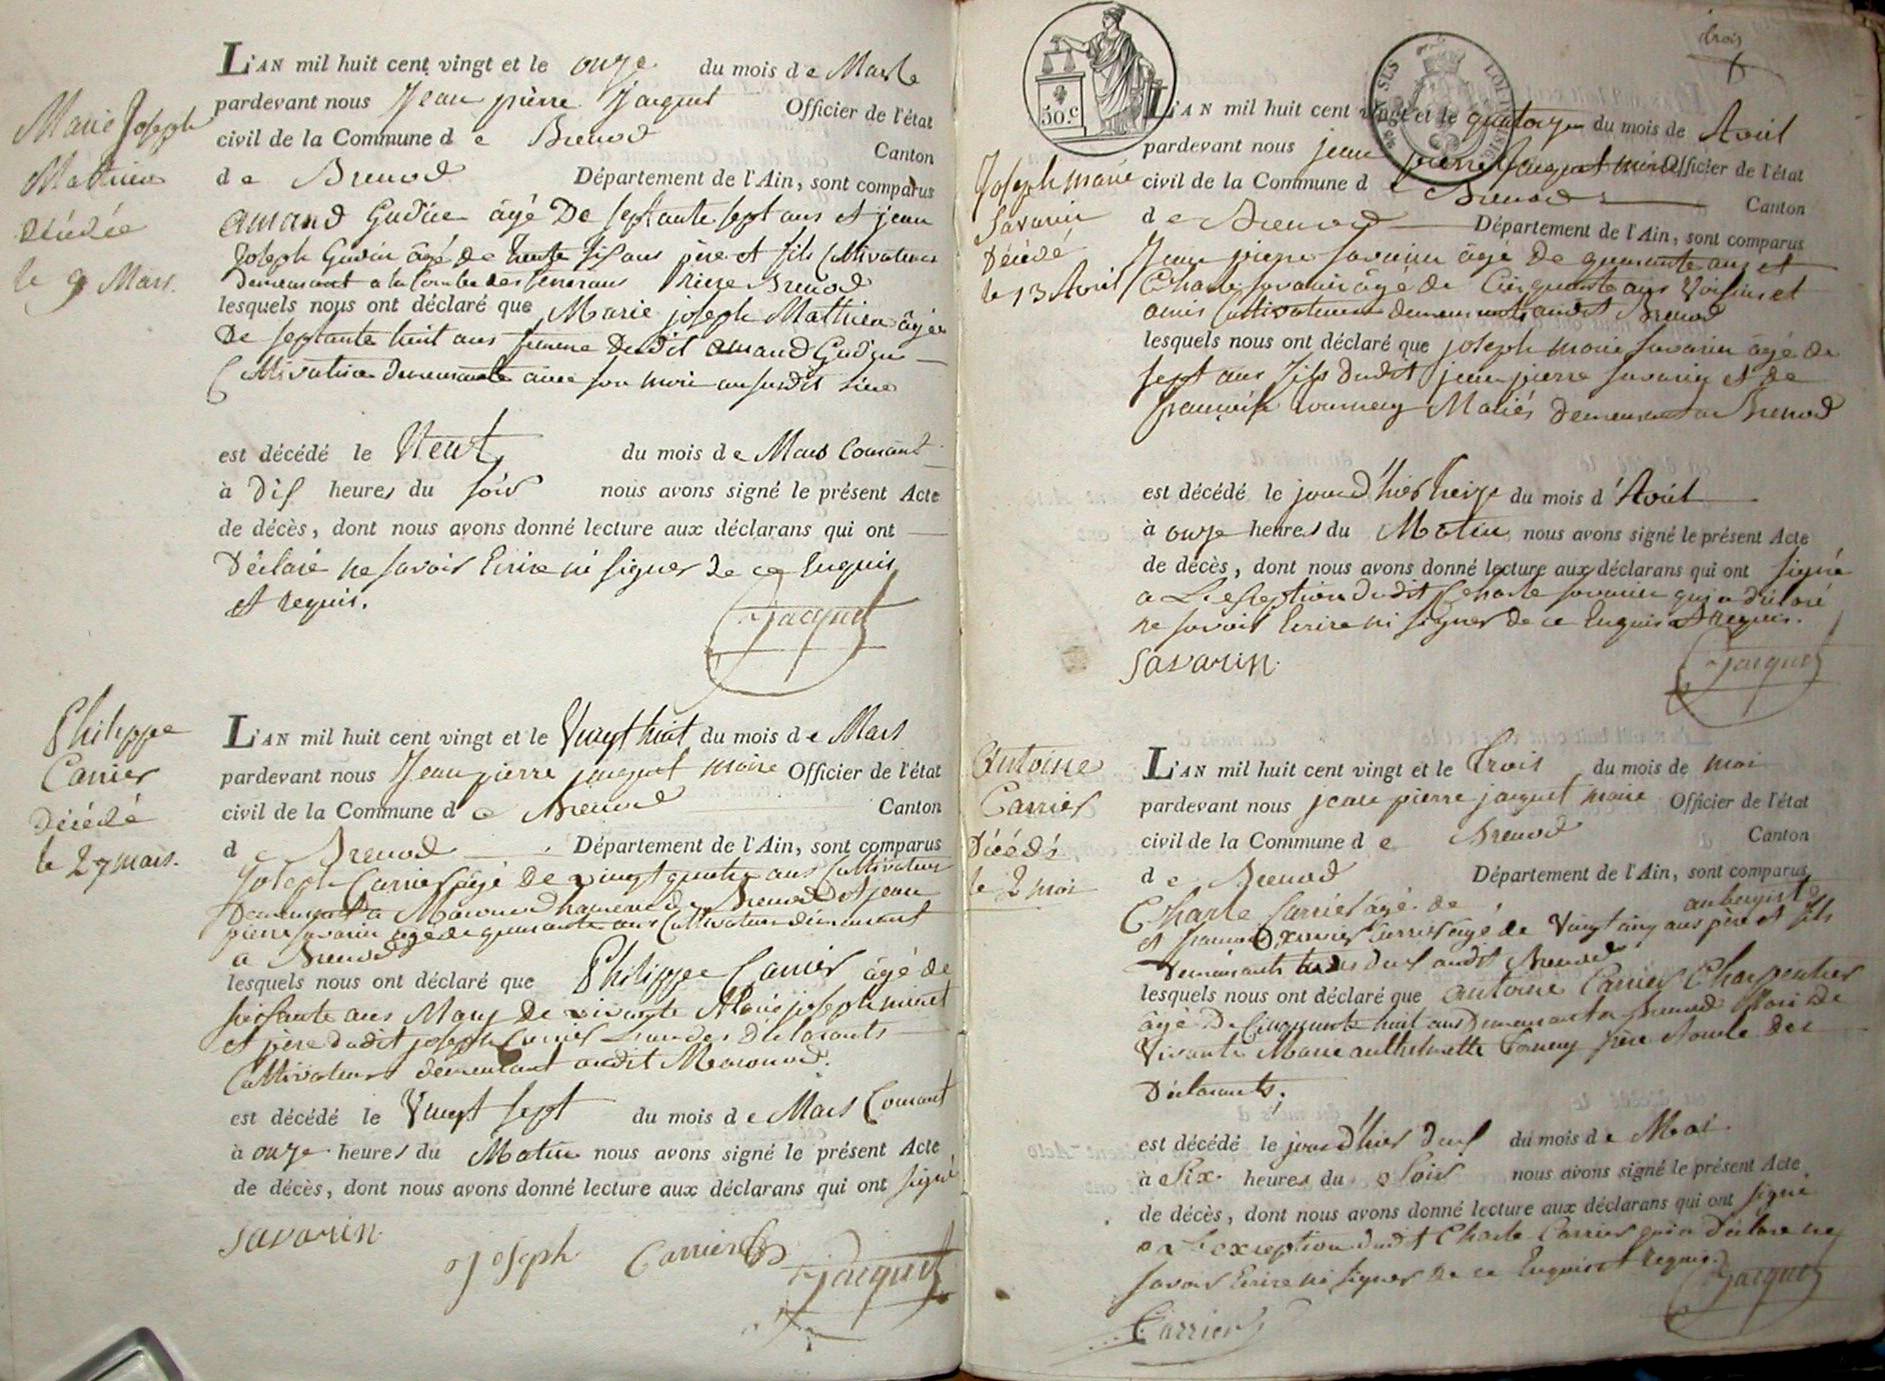 Marie Joseph
Mathieu
décédée
le 9 Mars.
L'AN mil huit cent vingt et le onze du mois de Mars
pardevant nous Jean pierre Jacquet Officier de l'état
civil de la Commune de Brenod Canton
de Brenod Département de l'Ain, sont comparus
amand Gudin âgé De septante sept ans et jean
Joseph Gudin âgé de trente six ans père et fils Cultivateurs
demeurant a la Combe des Brenod
lesquels nous ont déclaré que Marie joseph Mathieu âgée
De septante huit ans femme Dudit amand Gudin
Cultivatrice demeurante avec son mari au susdit lieu
est décédé le Neuf du mois de Mars Courant
à dix heures du soir nous avons signé le présent Acte
de décès, dont nous avons donné lecture aux déclarans qui ont
Déclaré ne savoir Ecrire ni signer de ce Enquis
et requis.
Jacquet
Philippe
Carrier
Décédé
le 27 mars.
L'AN mil huit cent vingt et le Vingt huit du mois de Mars
pardevant nous Jean pierre jacquet maire Officier de l'état
civil de la Commune de Brenod Canton
de Brenod Département de l'Ain, sont comparus
Joseph Carrier âgé De vingt quatre ans Cultivateur
Demeurant a Macconod hameau de Brenod et jean
pierre savarin âgé de quarante ans Cultivateur demeurant
a Brenod
lesquels nous ont déclaré que Philippe Carrier âgé de
soixante ans Mary De vivante Marie joseph
et père dudit joseph Carrier l'un des déclarants
Cultivateur demeurant audit Macconod.
est décédé le Vingt sept du mois de Mars Courant
à onze heures du Matin nous avons signé le présent Acte
de décès, dont nous avons donné lecture aux déclarans qui ont signé
savarin
joseph Carrier
Jacquet
trois
50 c
Joseph marie
Savarin
Décédé
le 13 Avril
L'AN mil huit cent vingt et le quatorze du mois de Avril
pardevant nous jean pierre Jacquet maire Officier de l'état
civil de la Commune de Brenod Canton
de Brenod Département de l'Ain, sont comparus
Jean pierre savarin âgé De quarante ans et
Charle savarin âgé de Cinquante ans Voisins et
amis Cultivateurs demeurants audit Brenod
lesquels nous ont déclaré que joseph marie savarin âgé de
sept ans fils dudit jean pierre savarin et de
françoise Mariés demeurant a Brenod
est décédé le jour d'hier treize du mois d'Avril
à onze heures du Matin nous avons signé le présent Acte
de décès, dont nous avons donné lecture aux déclarans qui ont signé
a L'exception dudit Charle savarin qui a déclaré
ne savoir Ecrire ni signer de ce Enquis et requis.
savarin
Jacquet
Antoine
Carrier
Décédé
le 2 mai
L'AN mil huit cent vingt et le trois du mois de mai
pardevant nous jean pierre jacquet maire Officier de l'état
civil de la Commune de Brenod Canton
de Brenod Département de l'Ain, sont comparus
Charle Carrier âgé de aubergiste
et xavier Carrier âgé de Vingt cinq ans père et fils
Demeurants tous deux audit Brenod
lesquels nous ont déclaré que antoine Carrier Charpentier
âgé De Cinquante huit ans Demeurant a Brenod Mari de
Vivante Marie anthelmette frère et oncle des
Déclarants;
est décédé le jour d'hier deux du mois de Mai
à Six heures du Soir nous avons signé le présent Acte
de décès, dont nous avons donné lecture aux déclarans qui ont signé
a L'exception dudit Charle Carrier qui a Déclaré ne
savoir Ecrire ni signer de ce Enquis et requis.
Jacquet
Carrier